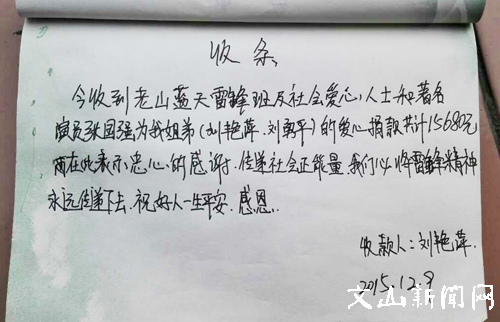 收条
今收到老山蓝天雷锋班及社会爱心人士和著名
演员张国强为我姐弟(刘艳萍、刘勇平)的爱心捐款共计15680元
而在此表示忠心的感谢!传递社会正能量,我们必将雷锋精神
永远传递下去,祝好人一生平安,感恩.
收款人:刘艳萍.
2015.12.9
文山新闻网